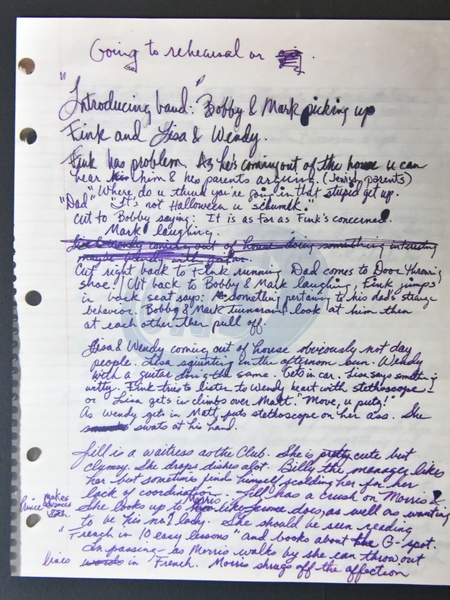 Going to rehearsal or
"Introducing band:" Bobby & Mark picking up
Fink and Lisa & Wendy.
Fink has problem. As he's coming out of the house u can
hear him & his parents arguing. (Jewish parents)
"Dad" "Where do u think you're goin' in that stupid get up.
It's not Halloween u schumk."
Cut to Bobby saying: It is as far as Fink's concerned.
Mark laughing.
Lisa & Wendy coming out of house doing something interesting
maybe
Cut right back to Fink running Dad comes to Door throwing
shoe! Cut back to Bobby & Mark laughing, Fink jumps
in back seat says: something pertaining to his dad's strange
behavior. Bobby & Mark turnaround look at him then
at each other then pull off.
Lisa & Wendy coming out of house obviously not day
people. Lisa squinting in the afternoon sun. Wendy
with a guitar doing the same. Gets in car. Lisa says something
witty. Fink tries to listen to Wendy heart with stethoscope
or Lisa gets in climbs over Matt. "Move, u putz!"
As Wendy gets in Matt puts stethoscope on her ass. She
swats at his hand.
Jill is a waitress at the Club. She is pretty cute but
clymsy. She drops dishes alot. Billy the manager likes
her but sometimes find himself scolding her for her
lack of coordination. Jill has a crush on Morris.
She looks up to Morris like some does, as well as wanting
to be his no.1 lady. She should be seen reading
"French in 10 easy lessons" and books about the G-spot.
In passing as Morris walks by she can throw out
lines in French. Morris shrugs off the affection